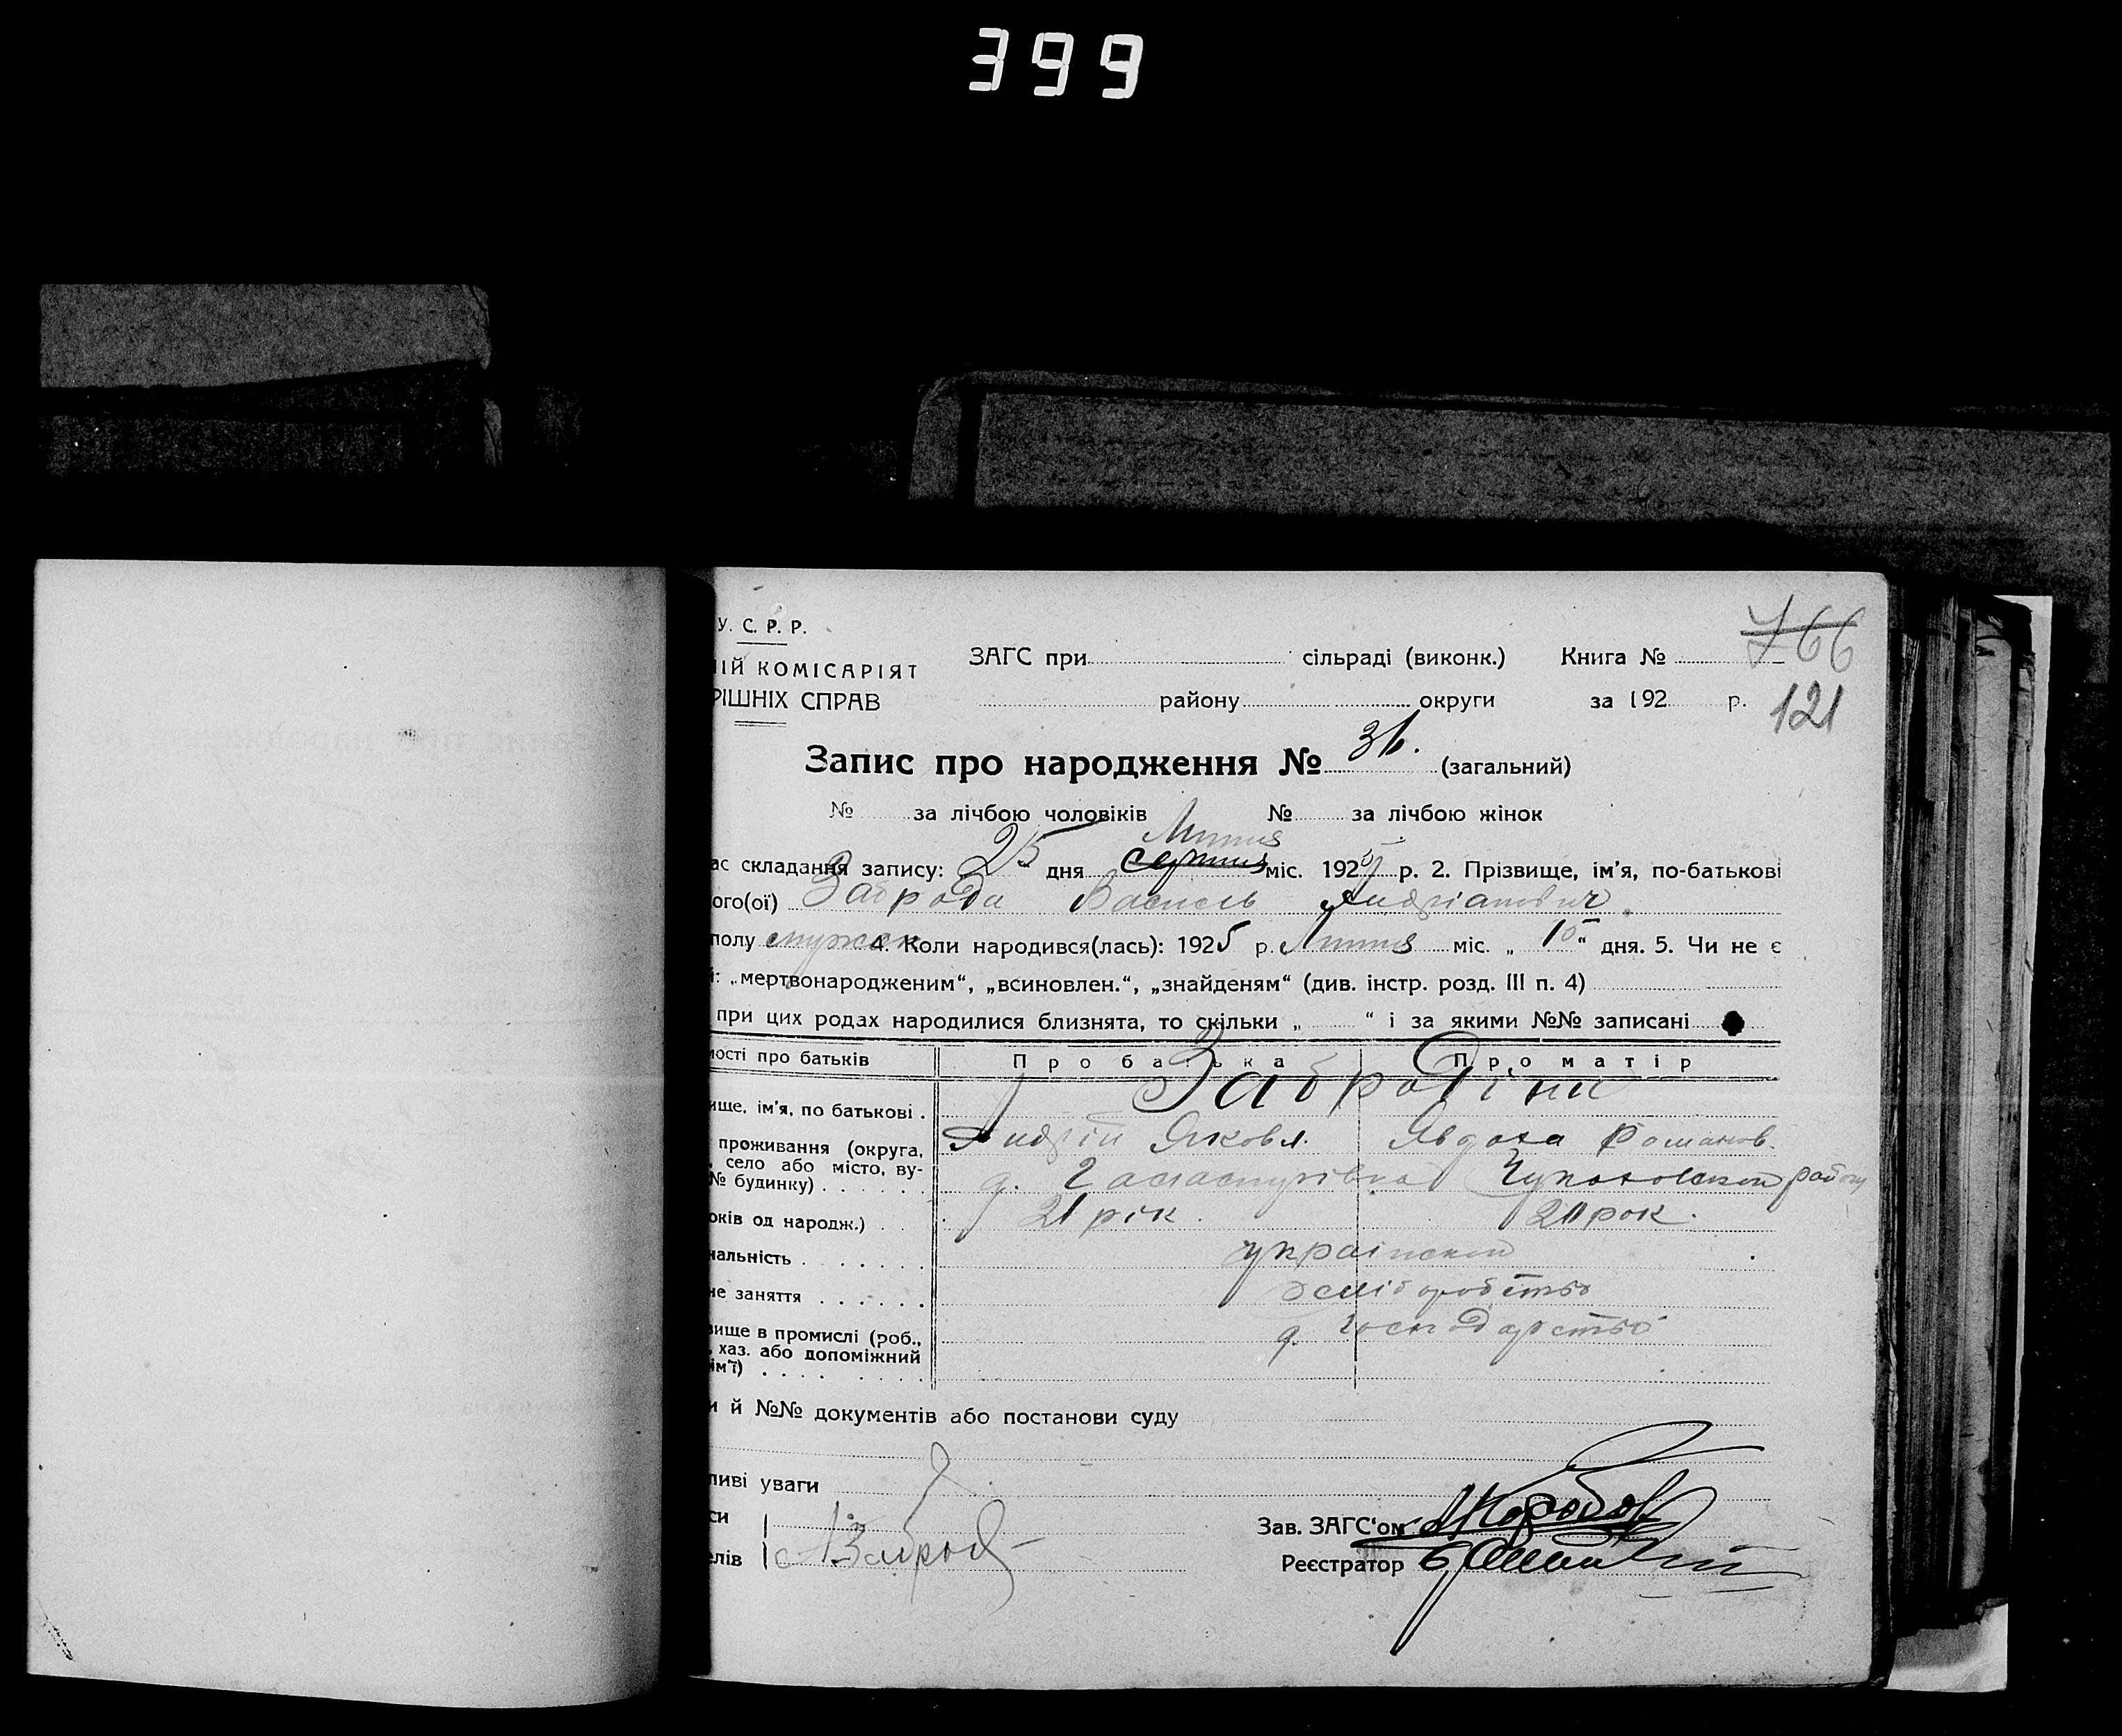 399
У. С. Р. Р.
ІЙ КОМІСАРІЯТ
РІШНІХ СПРАВ
ЗАГС при сільраді (виконк.) Книга № 766
району округи за 192 р. 121
Запис про народження № (загальний)
№ за лічбою чоловіків № за лічбою жінок
Липня
ас складання запису: 25 дня серпня міс. 1925 р. 2. Прізвище, ім'я, по-батькові
ого(ої) Заброда Василь Андріанович
полу мужск 4. Коли народився(лась): 1925 р. Липня міс. „ 15 “ дня. 5. Чи не є
й: „мертвонародженим“, „всиновлен.“, „знайденям“ (див. інстр. розд. III п. 4)
при цих родах народилися близнята, то скільки „ “ і за якими №№ записані
мості про батьків Про батька Про матір
ище, ім'я, по батькові . Заброд
Андрій Яковл. Явдоха Романов.
проживання (округа,
, село або місто, ву-
№ будинку) д. району
оків од народж.) 21 рік. рок.
нальність украінской
не заняття
вище в промислі (роб.,
, хаз. або допоміжний
ім'ї) господарство
и й №№ документів або постанови суду
ливі уваги
си
елів Заброд
Зав. ЗАГС'ом
Реєстратор